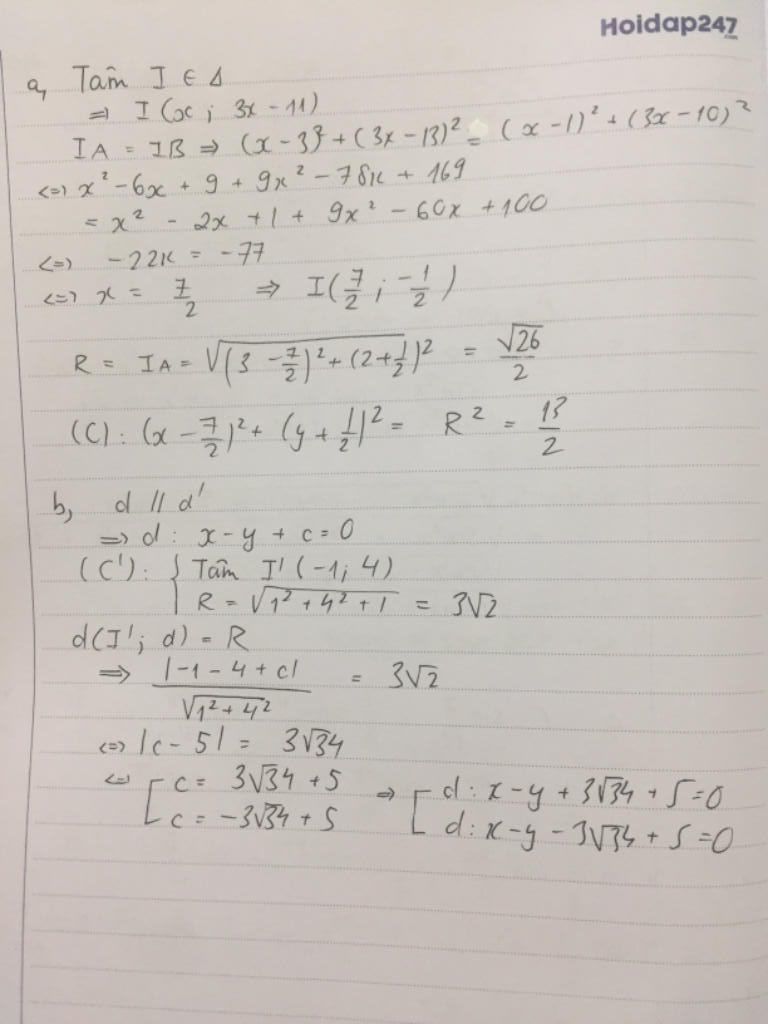 Hoidap247
a, Tâm I ∈ Δ
⇒ I(x; 3x - 11)
IA = IB ⇒ (x - 3)² + (3x - 13)² = (x - 1)² + (3x - 10)²
<=> x² - 6x + 9 + 9x² - 78x + 169
= x² - 2x + 1 + 9x² - 60x + 100
<=> -22x = -77
<=> x = 7/2 ⇒ I(7/2; -1/2)
R = IA = √(3 - 7/2)² + (2 + 1/2)² = √26/2
(C): (x - 7/2)² + (y + 1/2)² = R² = 13/2
b, d // d'
⇒ d: x - y + c = 0
(C'): { Tâm I' (-1; 4)
R = √1² + 4² + 1 = 3√2
d(I'; d) = R
⇒ |-1 - 4 + c| / √1² + 4² = 3√2
<=> |c - 5| = 3√34
<=> [ c = 3√34 + 5 ⇒ [ d: x - y + 3√34 + 5 = 0
c = -3√34 + 5 d: x - y - 3√34 + 5 = 0